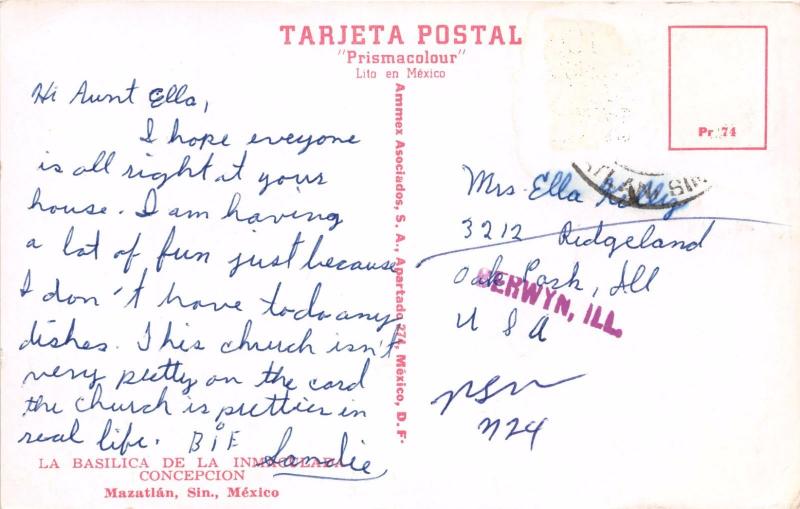 TARJETA POSTAL
"Prismacolour"
Lito en México
Pr 74
Hi Aunt Ella,
I hope eveyone
is all right at your
house. I am having
a lot of fun just because
I don't have to do any
dishes. This chruch isn't
very pretty on the card
the church is prettier in
real life.
Sandie
LA BASILICA DE LA INMACULADA
CONCEPCION
Mazatlán, Sin., México
Ammex Asociados, S. A., Apartado 274, México, D. F.
Mrs. Ella Kelly
3212 Ridgeland
Oak Park, Ill
U S A
BERWYN, ILL.
N24